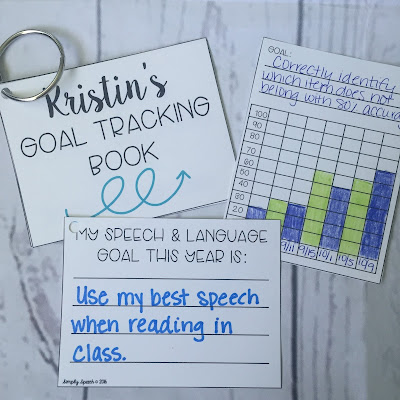 Kristin's
GOAL TRACKING
BOOK
GOAL:
Correctly identify
which item does not
belong with 80%
100
90
80
70
60
50
40
30
20
9/11
10/1
10/5
10/9
MY SPEECH & LANGUAGE
GOAL THIS YEAR IS:
Use my best speech
when reading in
class.
Simply Speech © 2016